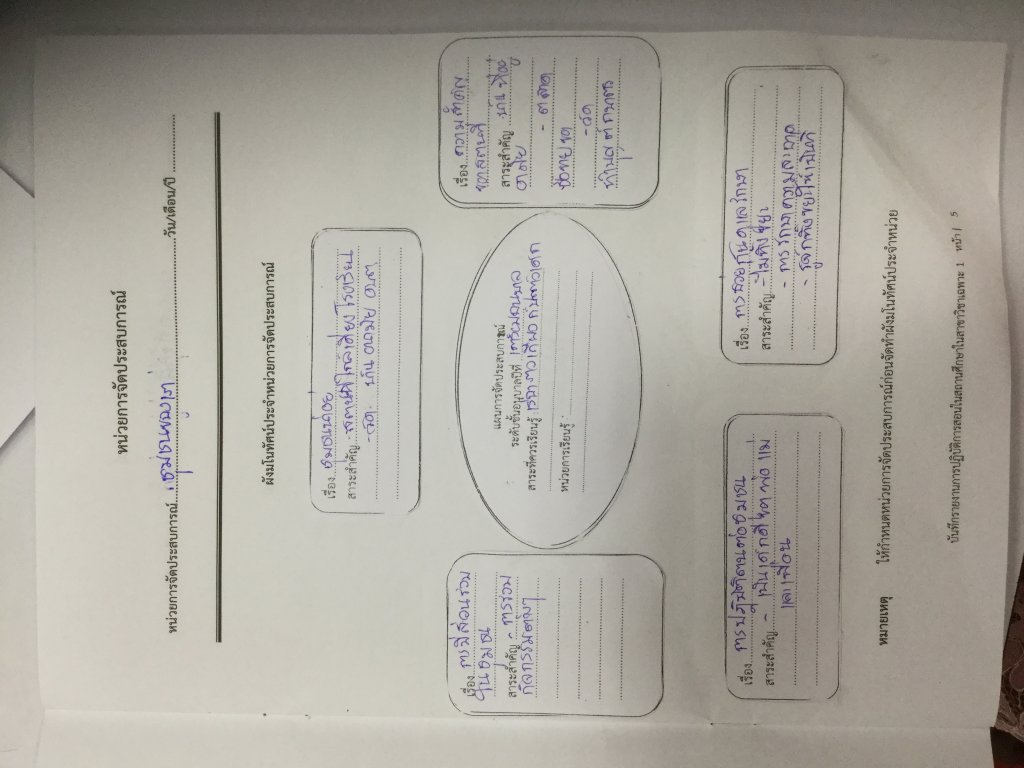 หน่วยการจัดประสบการณ์
หน่วยการจัดประสบการณ์ ชุมชนของเรา วัน/เดือน/ปี
ผังมโนทัศน์ประจำหน่วยการจัดประสบการณ์
เรื่อง ชุมชนน่าอยู่
สาระสำคัญ
- วัด
เรื่อง การมีส่วนร่วม
ในชุมชน
สาระสำคัญ - การร่วม
กิจกรรมต่างๆ
แผนการจัดประสบการณ์
ระดับชั้นอนุบาลปีที่
สาระที่ควรเรียนรู้
หน่วยการเรียนรู้
เรื่อง ความสำคัญ
ของสถานที่
สาระสำคัญ - บ้าน ที่อยู่
อาศัย
- ตลาด
ซื้อขายของ
- วัด
ทำบุญตักบาตร
เรื่อง การปฏิบัติตนต่อชุมชน
สาระสำคัญ - เป็นเด็กดีของพ่อ แม่
และเพื่อน
เรื่อง การช่วยกันดูแลรักษา
สาระสำคัญ - ไม่ทิ้งขยะ
- การรักษาความสะอาด
- รู้จักทิ้งขยะให้เป็นที่
หมายเหตุ ให้กำหนดหน่วยการจัดประสบการณ์ก่อนจัดทำผังมโนทัศน์ประจำหน่วย
บันทึกรายงานการปฏิบัติการสอนในสถานศึกษาในสาขาวิชาเฉพาะ 1 หน้า / 5